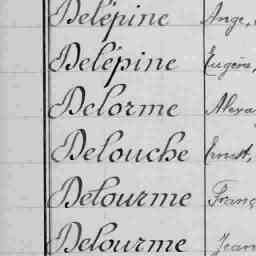 Delépine Ange,
Delépine Eugène,
Delorme Alexa
Delouche Ernest,
Delourme Franç
Delourme Jean